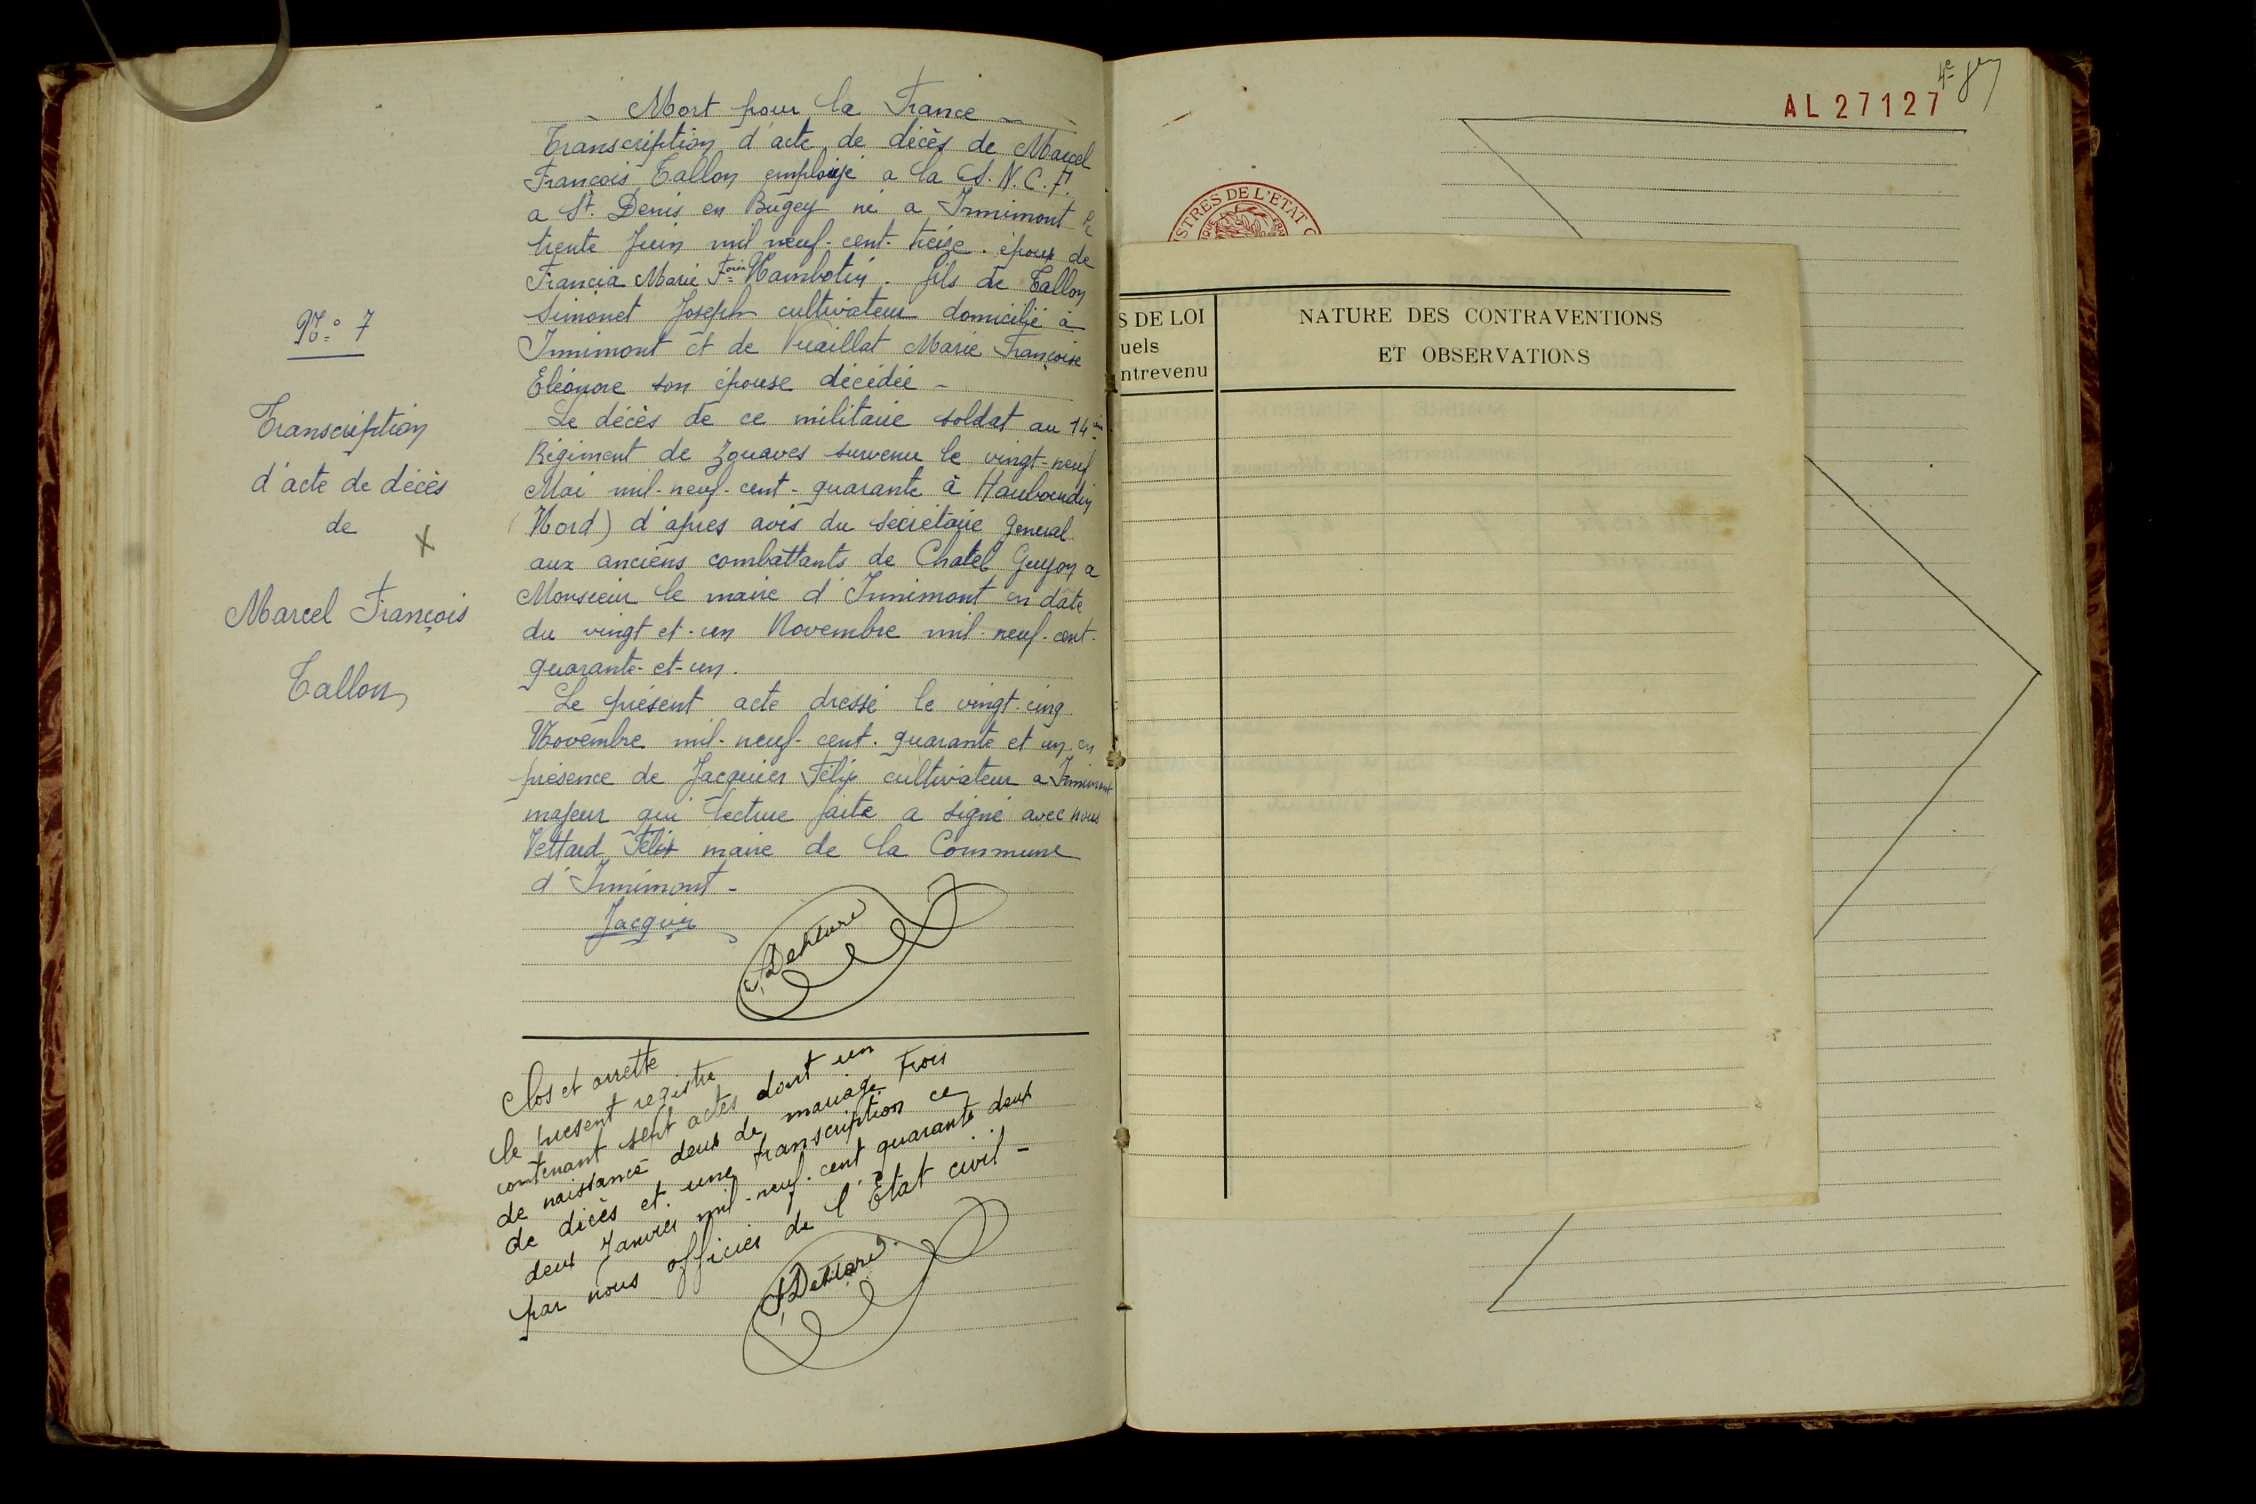 N.o 7
Transcription
d'acte de décès
de
Marcel François
Tallon
- Mort pour la France -
Transcription d'acte de décès de Marcel
François Tallon employé a la S.N.C.F.
a St. Denis en Bugey né a Innimont le
trente Juin mil neuf-cent-treize. époux de
Francia Marie Foise Hambotin. fils de Tallon
Simonet Joseph cultivateur domicilié à
Innimont et de Vuaillat Marie Françoise
Eléonore son épouse décédée -
Le décès de ce militaire soldat au 14ème
Régiment de Zouaves survenu le vingt-neuf
Mai mil-neuf-cent-quarante à Haubourdin
(Nord) d'apres avis du secrétaire general
aux anciens combattants de Chatel Guyon a
Monsieur le maire d'Innimont en date
du vingt et-un Novembre mil-neuf-cent-
quarante-et-un.
Le présent acte dressé le vingt-cinq
Novembre mil-neuf-cent-quarante et un en
présence de Jacquier Félix cultivateur a Innimont
majeur qui lecture faite a signé avec nous
Vettard Félix maire de la Commune
d'Innimont-
Jacquier
Clos et arretté
le present registre
contenant sept actes dont un
de naissance deux de mariage trois
de dicès et une transcription ce
deux Janvier mil-neuf-cent quarante deux
par nous officier de l'Etat civil -
4e
AL27127
STRES DE L'ETAT C
S DE LOI
uels
ntrevenu
NATURE DES CONTRAVENTIONS
ET OBSERVATIONS